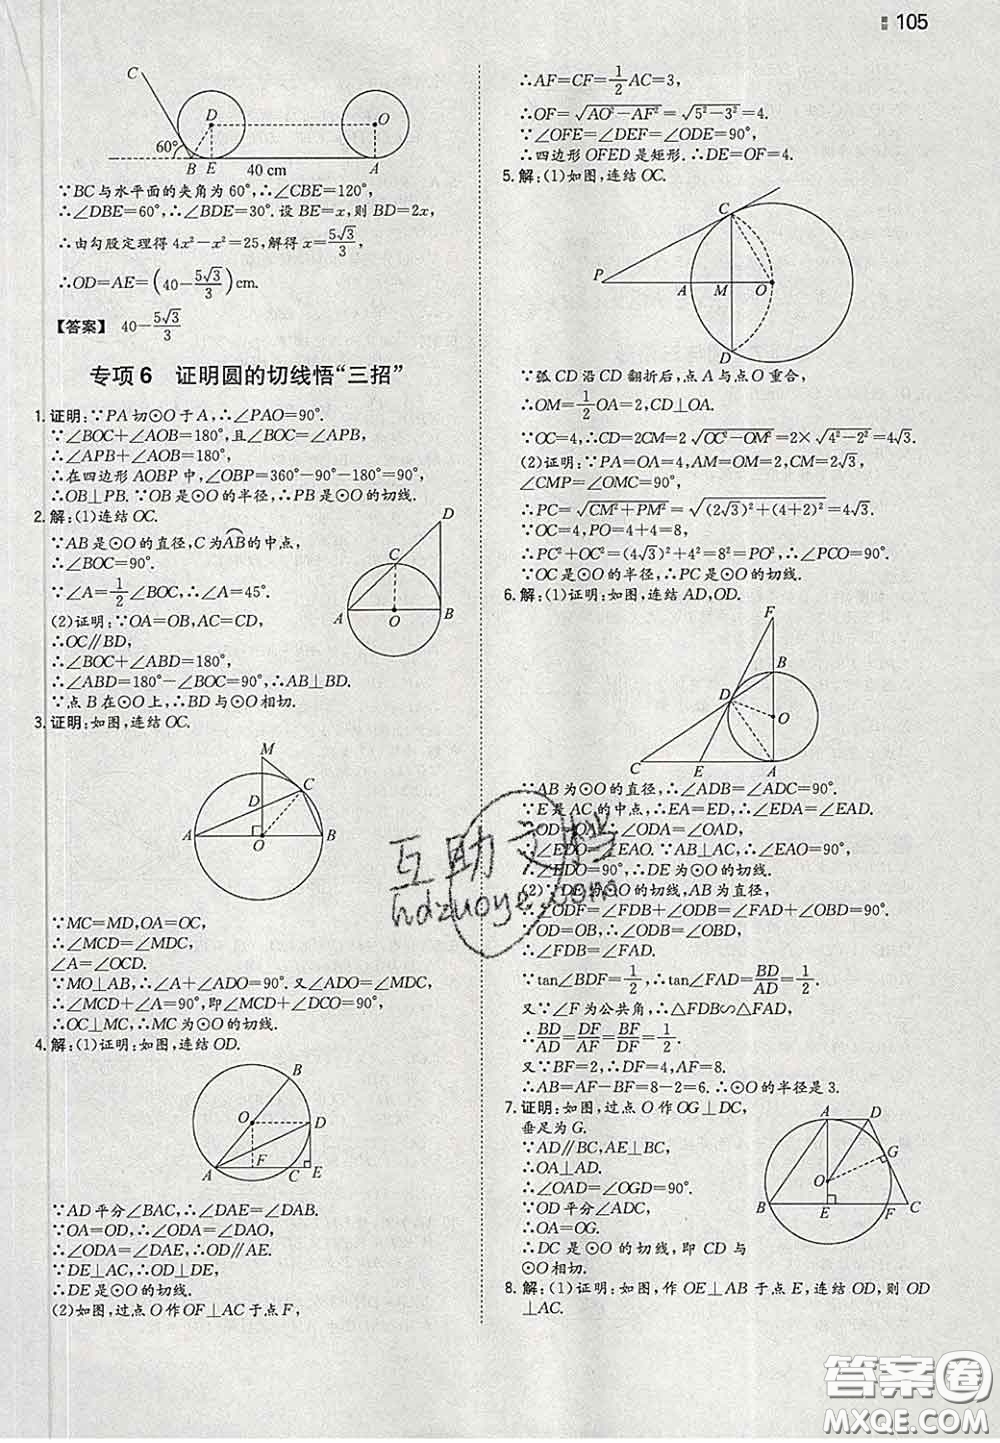 105
C
D
O
60°
B E
40 cm
A
∵BC与水平面的夹角为60°,∴∠CBE=120°,
∴∠DBE=60°,∴∠BDE=30°.设BE=x,则BD=2x,
∴由勾股定理得4x²-x²=25,解得x=5√3/3,
∴OD=AE=(40-5√3/3)cm.
【答案】 40-5√3/3
专项6 证明圆的切线悟“三招”
1.证明:∵PA切⊙O于A,∴∠PAO=90°.
∵∠BOC+∠AOB=180°,且∠BOC=∠APB,
∴∠APB+∠AOB=180°.
∴在四边形AOBP中,∠OBP=360°-90°-180°=90°.
∴OB⊥PB.∵OB是⊙O的半径,∴PB是⊙O的切线.
2.解:(1)连结OC.
∵AB是⊙O的直径,C为AB的中点,
∴∠BOC=90°.
∵∠A=1/2∠BOC,∴∠A=45°.
(2)证明:∵OA=OB,AC=CD,
∴OC∥BD,
∴∠BOC+∠ABD=180°,
∴∠ABD=180°-∠BOC=90°,∴AB⊥BD.
∵点B在⊙O上,∴BD与⊙O相切.
D
C
A
O
B
3.证明:如图,连结OC.
M
C
D
A
O
B
∵MC=MD,OA=OC,
∴∠MCD=∠MDC,
∠A=∠OCD.
∵MO⊥AB,∴∠A+∠ADO=90°.又∠ADO=∠MDC,
∴∠MCD+∠A=90°,即∠MCD+∠DCO=90°,
∴OC⊥MC,∴MC为⊙O的切线.
4.解:(1)证明:如图,连结OD.
B
O
D
A
F
C
E
∵AD平分∠BAC,∴∠DAE=∠DAB.
∵OA=OD,∴∠ODA=∠DAO,
∴∠ODA=∠DAE,∴OD∥AE.
∵DE⊥AC,∴OD⊥DE,
∴DE是⊙O的切线.
(2)如图,过点O作OF⊥AC于点F,
∴AF=CF=1/2AC=3,
∴OF=√(AO²-AF²)=√(5²-3²)=4.
∵∠OFE=∠DEF=∠ODE=90°,
∴四边形OFED是矩形.∴DE=OF=4.
5.解:(1)如图,连结OC.
C
P
A
M
O
D
∵弧CD沿CD翻折后,点A与点O重合,
∴OM=1/2OA=2,CD⊥OA.
∵OC=4,∴CD=2CM=2√(OC²-OM²)=2×√(4²-2²)=4√3.
(2)证明:∵PA=OA=4,AM=OM=2,CM=2√3,
∠CMP=∠OMC=90°,
∴PC=√(CM²+PM²)=√((2√3)²+(4+2)²)=4√3.
∵OC=4,PO=4+4=8,
∴PC²+OC²=(4√3)²+4²=8²=PO²,∴∠PCO=90°.
∵OC是⊙O的半径,∴PC是⊙O的切线.
6.解:(1)证明:如图,连结AD,OD.
F
B
D
O
C
E
A
∵AB为⊙O的直径,∴∠ADB=∠ADC=90°.
∵E是AC的中点,∴EA=ED,∴∠EDA=∠EAD.
∵OD=OA,∴∠ODA=∠OAD,
∴∠EDO=∠EAO.∵AB⊥AC,∴∠EAO=90°,
∴∠EDO=90°,∴DE为⊙O的切线.
(2)∵DE为⊙O的切线,AB为直径,
∴∠ODF=∠FDB+∠ODB=∠FAD+∠OBD=90°.
∵OD=OB,∴∠ODB=∠OBD,
∴∠FDB=∠FAD.
∵tan∠BDF=1/2,∴tan∠FAD=BD/AD=1/2.
又∵∠F为公共角,∴△FDB∽△FAD,
∴BD/AD=DF/AF=BF/DF=1/2.
又∵BF=2,∴DF=4,AF=8.
∴AB=AF-BF=8-2=6.∴⊙O的半径是3.
7.证明:如图,过点O作OG⊥DC,
垂足为G.
∵AD∥BC,AE⊥BC,
∴OA⊥AD.
∴∠OAD=∠OGD=90°.
∵OD平分∠ADC,
∴OA=OG.
∴DC是⊙O的切线,即CD与
⊙O相切.
A
D
G
O
B
E
F
C
8.解:(1)证明:如图,作OE⊥AB于点E,连结OD,则OD
⊥AC.
互助文档
hdzuoye.com
答案圈
MXQE.COM